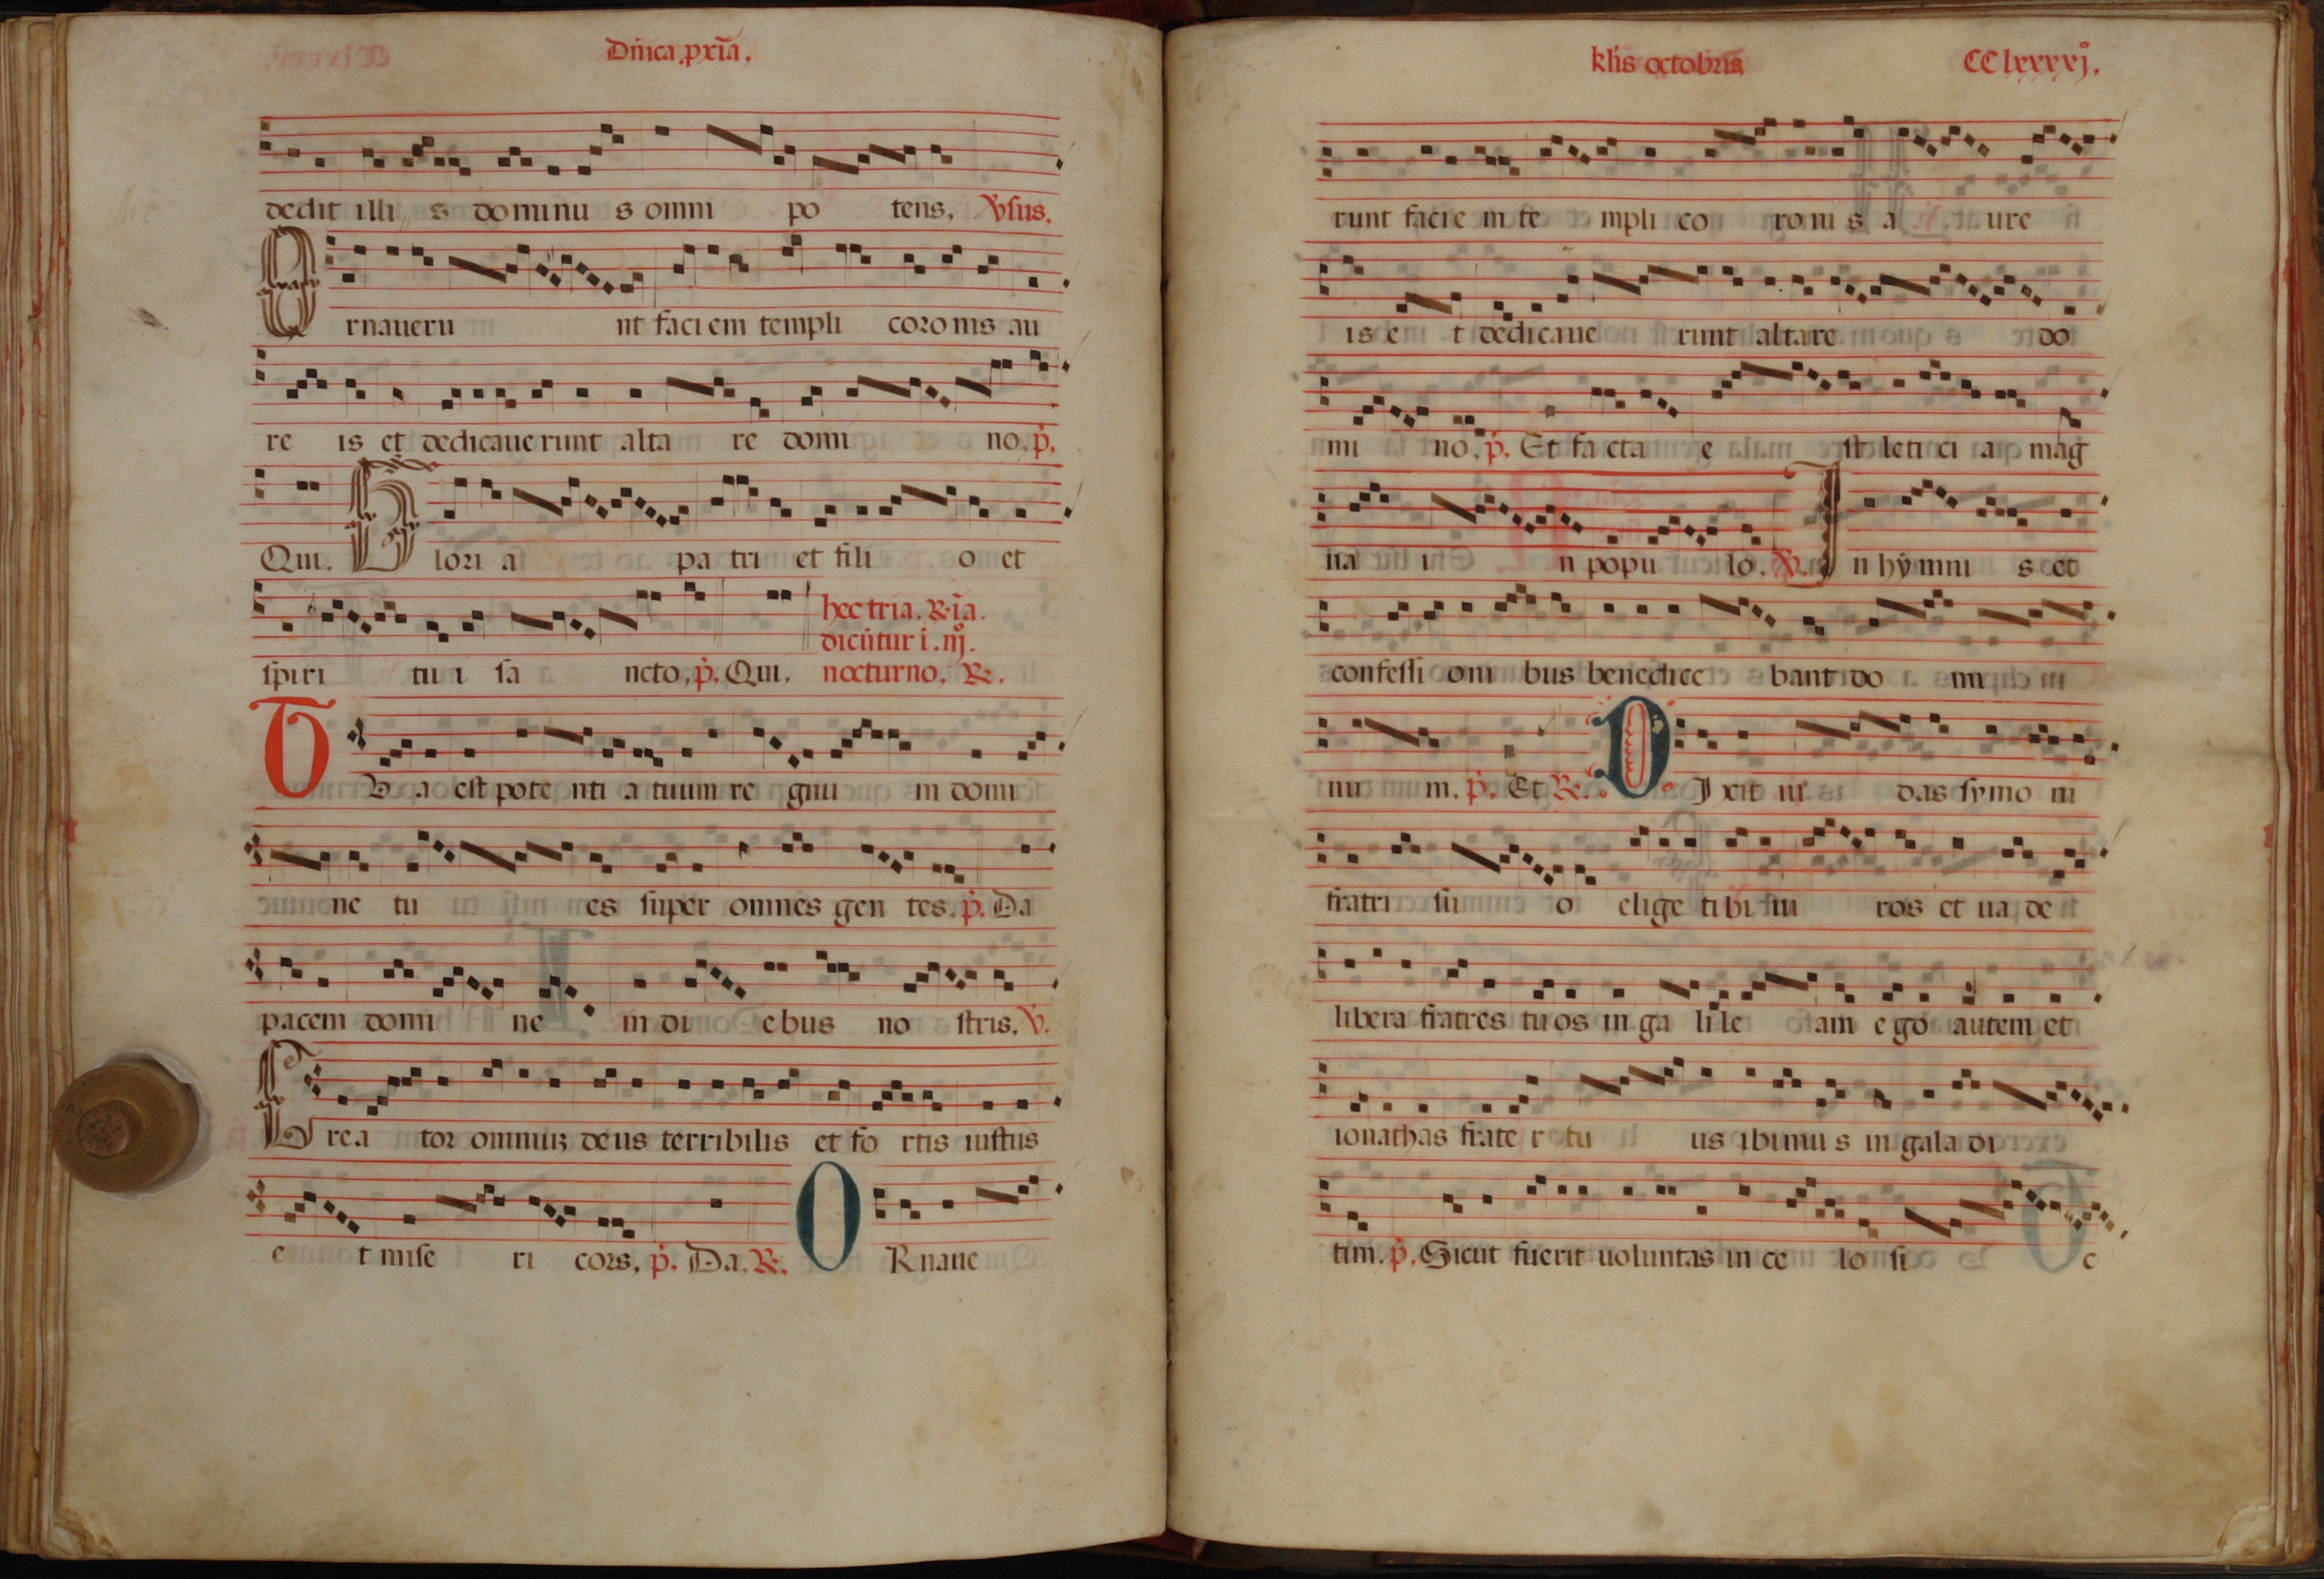 Dnica. pxīa,
dedit illi s dominu s omni po tens, Vsus.
O rnaueru nt faciem templi coronis au
re is et dedicauerunt alta re domi no. p.
Qui. G lori a pa tri et fili o et
spiri tu i sa ncto, p. Qui, hec tria. Rīa.
dicūtur ī. iijº.
nocturno, R.
T V a est pote nti a tuum re gnu m domi
ne tu es super omnes gen tes. p. Da
pacem domi ne in di ebus no stris, V.
C rea tor omniuꝫ deus terribilis et fo rtis iustus
e t mise ri cors, p. Da, R. O R naue
klis octobris CClxxxxjº.
runt facie m te mpli co roni s a ure
is e t dedicaue runt altare do
mi no, p. Et facta e st leti ci a mag
na i n popu lo. V. I n hymni s et
confessi oni bus benedice bant do mi
nu m. p. Et R. D I xit iu das symo ni
fratri su o elige tibi ui ros et ua de
libera fratres tuos in ga lile am ego autem et
ionathas frate r tu us ibimu s in gala di
tim. p. Sicut fuerit uoluntas in ce lo si c